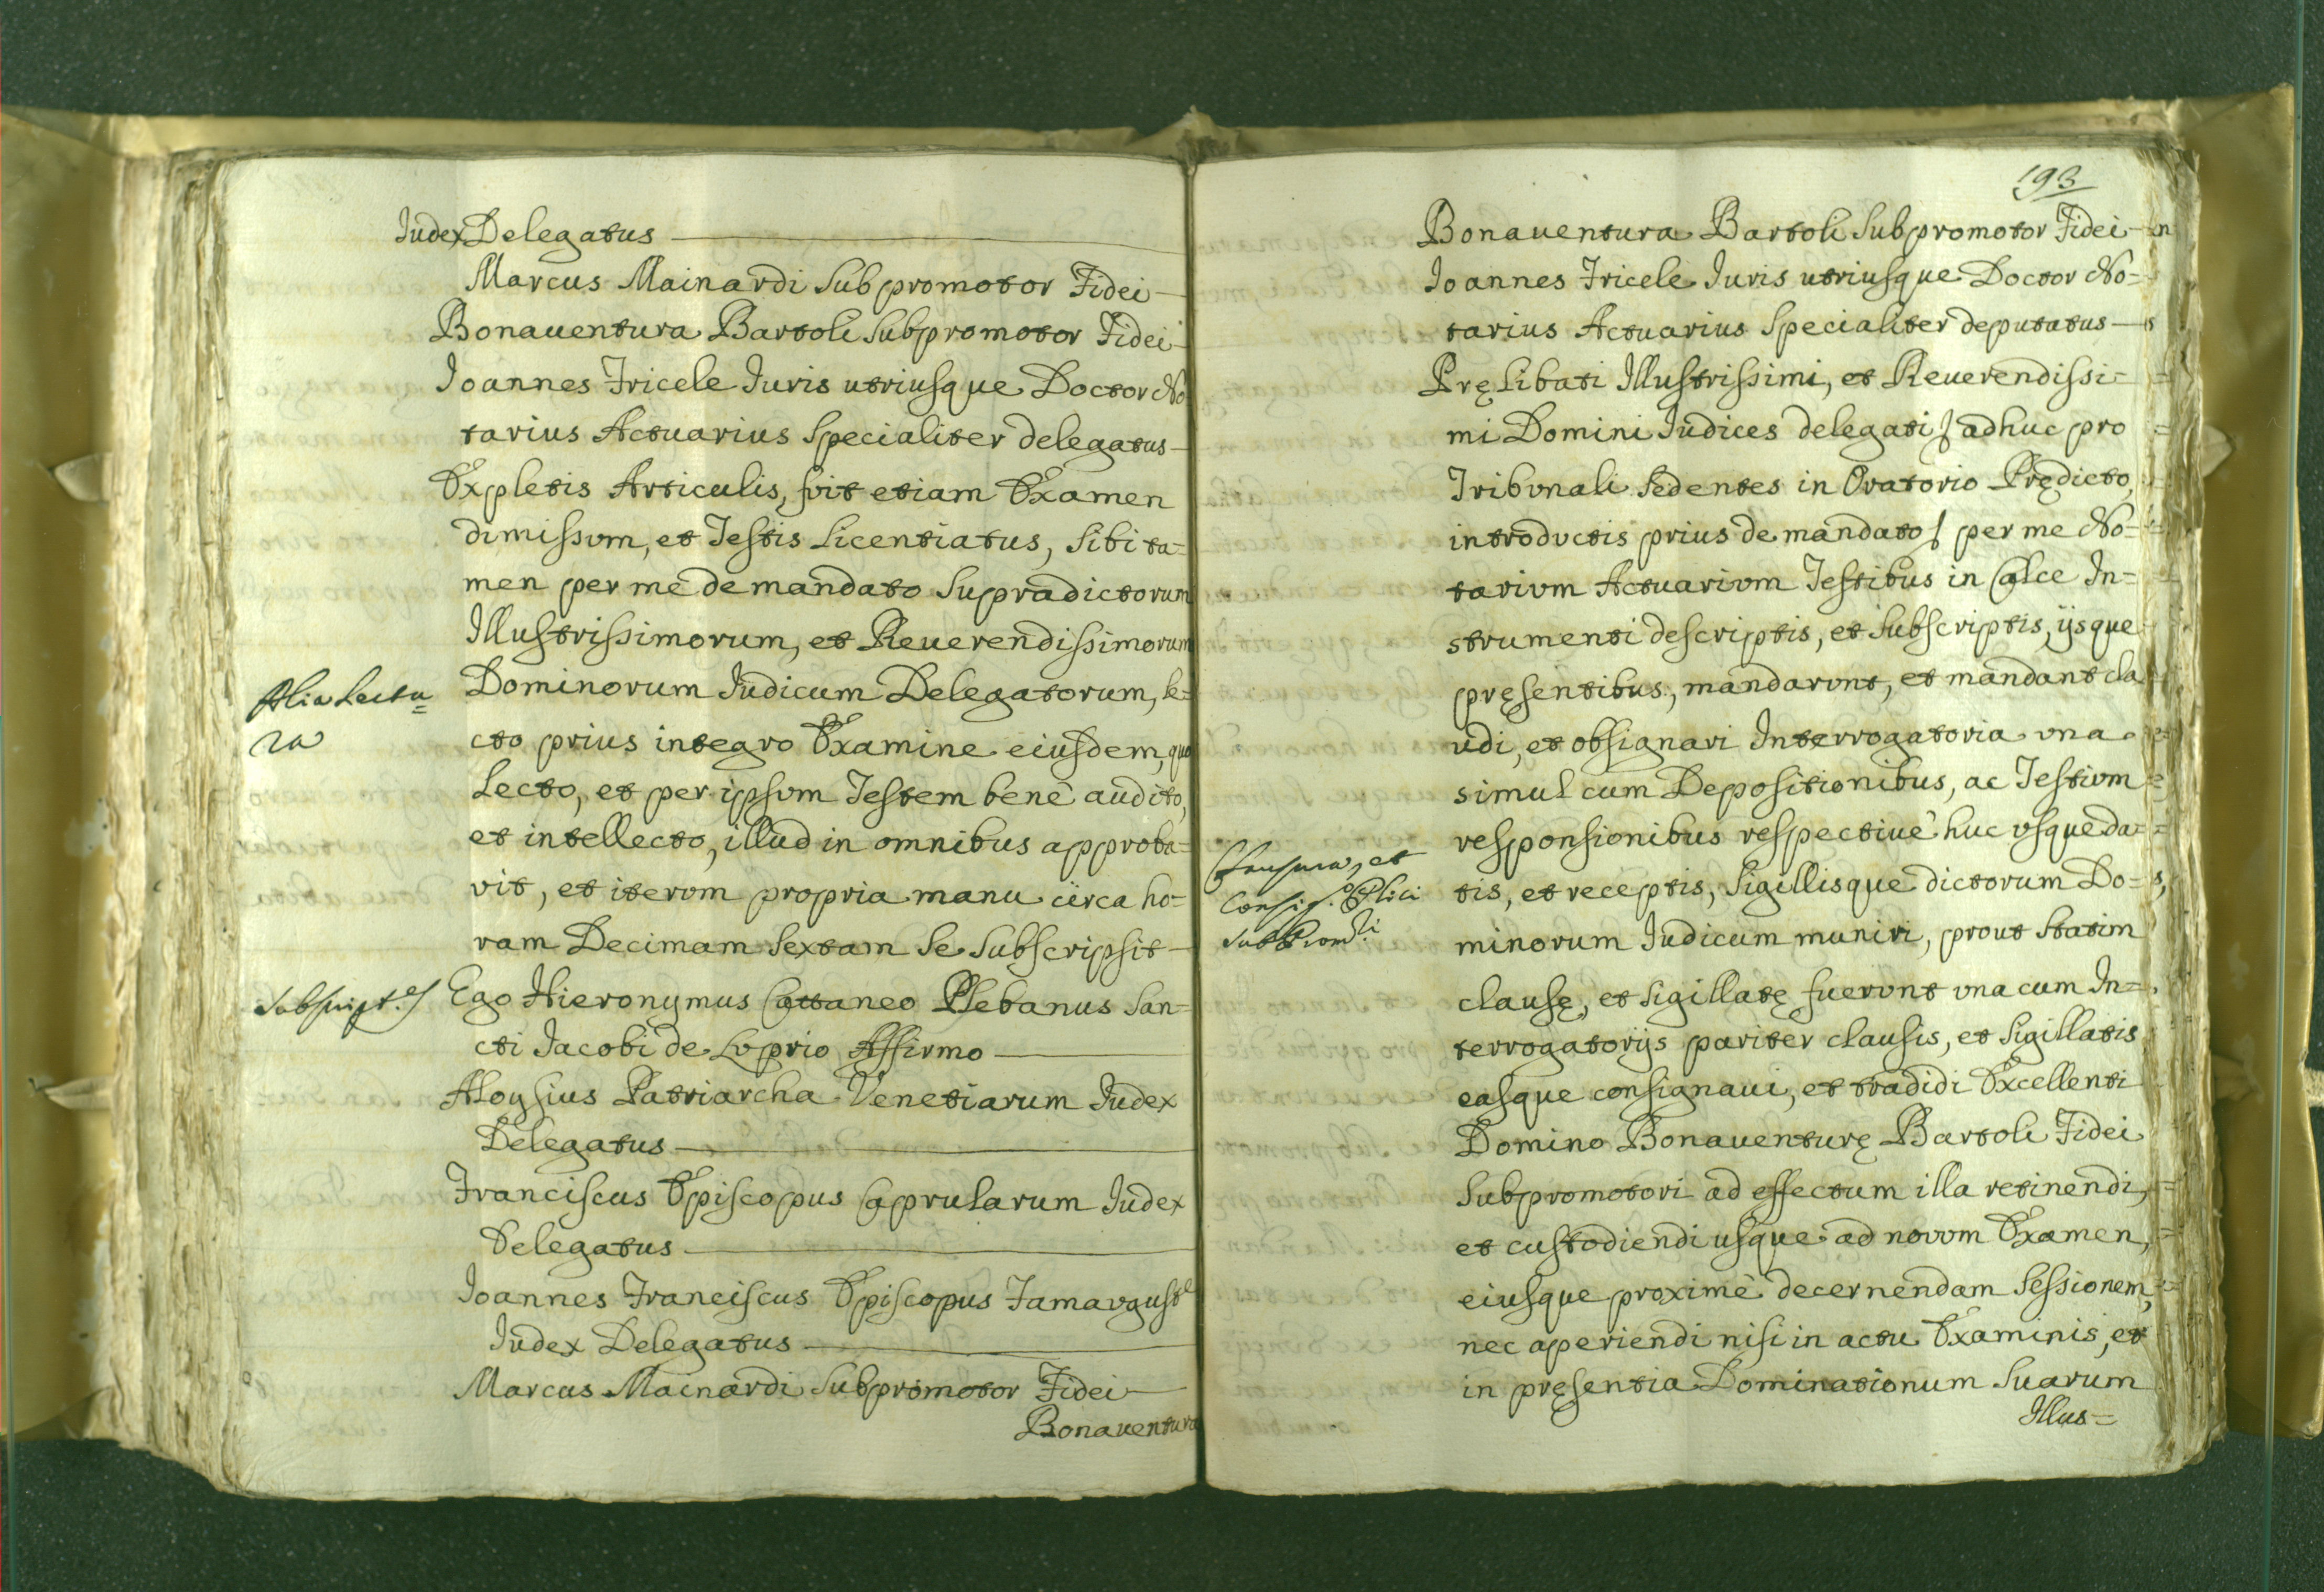 Iudex Delegatus
Marcus Mainardi Subpromotor Fidei
Bonauentura Bartoli Subpromotor Fidei
Ioannes Fricele Iuris utriusque Doctor No
tarius Actuarius Specialiter delegatus
Expletis Articulis, fuit etiam Examen
dimissum, et Testis Licentiatus, Sibi ta=
men per me de mandato Supradictorum
Illustrissimorum, et Reuerendissimorum
Alia Lectu=
ra
Dominorum Iudicum Delegatorum, le=
cto prius integro Examine eiusdem, quo
Lecto, et per ipsum Testem benè audito,
et intellecto, illud in omnibus approba=
vit, et iterum propria manu circa ho=
ram Decimam Sextam Se Subscripsit
Subscript.s
Ego Hieronymus Cattaneo Plebanus San=
cti Iacobi de Luprio Affirmo
Aloysius Patriarcha Venetiarum Iudex
Delegatus
Franciscus Episcopus Caprularum Iudex
Delegatus
Ioannes Franciscus Episcopus Famaugustę
Iudex Delegatus
Marcus Mainardi Subpromotor Fidei
Bonauentura
193
Bonauentura Bartoli Subpromotor Fidei
Ioannes Fricele Iuris utriusque Doctor No=
tarius Actuarius Specialiter deputatus
Pręlibati Illustrissimi, et Reuerendissi=
mi Domini Iudices delegati adhuc pro
Tribunali Sedentes in Oratorio Prędicto,
introductis prius de mandato per me No=
tarium Actuarium Testibus in Calce In=
strumenti descriptis, et Subscriptis, ijsque
pręsentibus, mandarunt, et mandant cla
udi, et obsignari Interrogatoria vna
simul cum Depositionibus, ac Testium
responsionibus respectiuè huc vsque da=
Clausura, et
Consig.
tis, et receptis, Sigillisque dictorum Do=
minorum Iudicum muniri, prout Statim
clausę, et Sigillatę fuerunt vna cum In=
terrogatorijs pariter clausis, et Sigillatis
easque consignaui, et tradidi Excellenti
Domino Bonauenturę Bartoli Fidei
Subpromotori ad effectum illa retinendi,
et custodiendi usque ad novum Examen,
eiusque proximè decernendam Sessionem,
nec aperiendi nisi in actu Examinis, et
in pręsentia Dominationum Suarum
Illus=